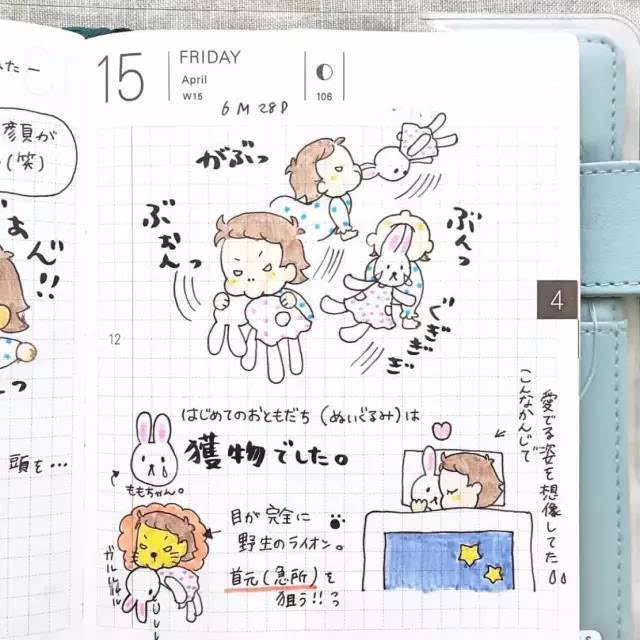 みたー
顔が
(笑)
頭を…
15
FRIDAY
April
W15
106
6M 28D
がぶっ
ぶぉんっ
ぶんっ
ぐぎぎぎ
12
4
はじめてのおともだち(ぬいぐるみ)は
獲物でした。
ももちゃん。
目が完全に
野生のライオン。
首元(急所)を
狙う!!
ガルルル
愛でる姿を想像してた
こんなかんじで